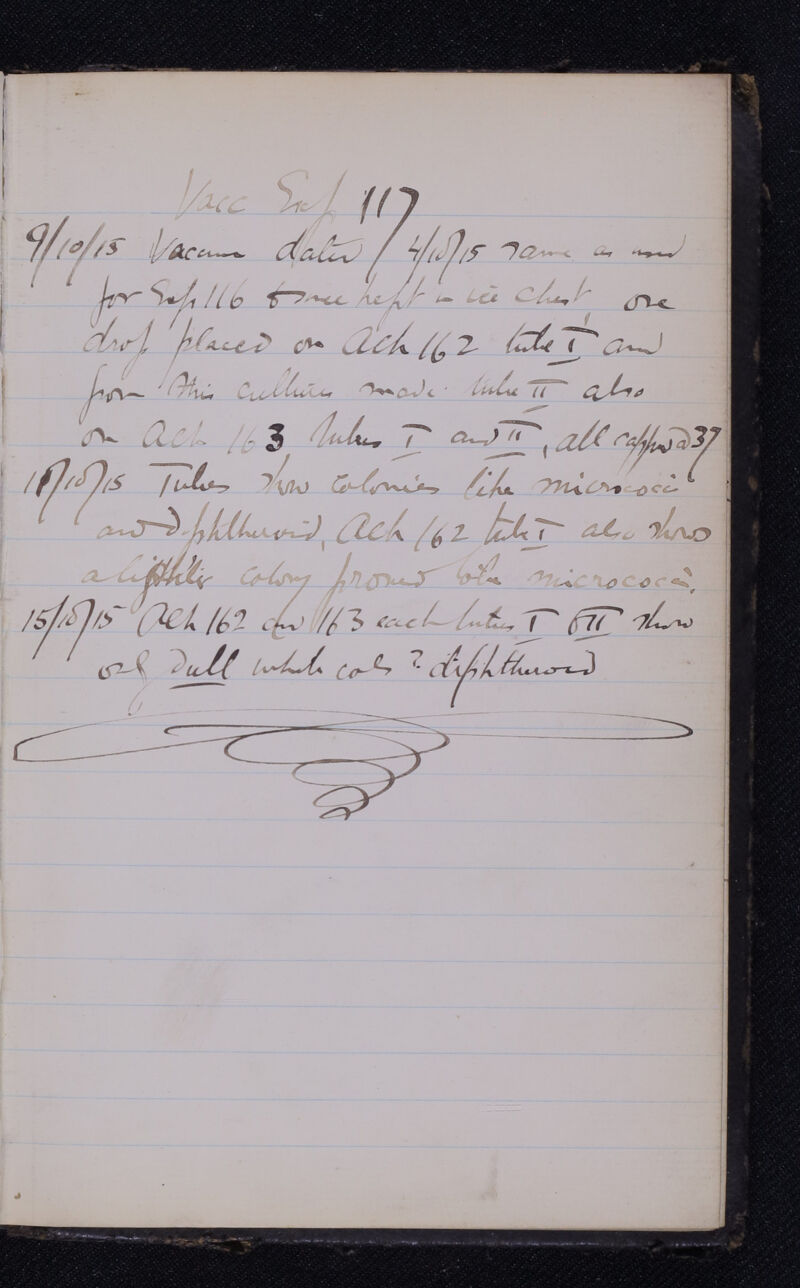 Vacc Exp 117
9/10/15 Vaccine dated 4/10/15 same as used
for Exp 116 & since kept in ice chest, one
drop placed on Ach 162 tube I and
from this cultures made tube II also
on Ach 163 tubes I and II, all capped @ 37
11/10/15 Tubes show colonies like micrococci
and diphtheroid, Ach 162 tube I also shows
a colony proved to be micrococci.
15/10/15 Ach 162 and 163 each tubes I & II show
only dull white cols ? diphtheroid